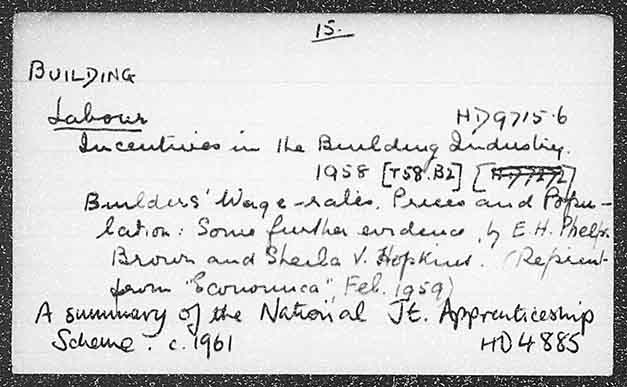 15.
BUILDING
Labour HD9715.6
Incentives in the Building Industry.
1958 [T58.B2]
Builders' Wage-rates, Prices and Popu-
lation: Some further evidence, by E.H. Phelps
Brown and Sheila V. Hopkins. (Reprint
from "Economica", Feb. 1959)
A summary of the National Jt. Apprenticeship
Scheme. c.1961 HD4885